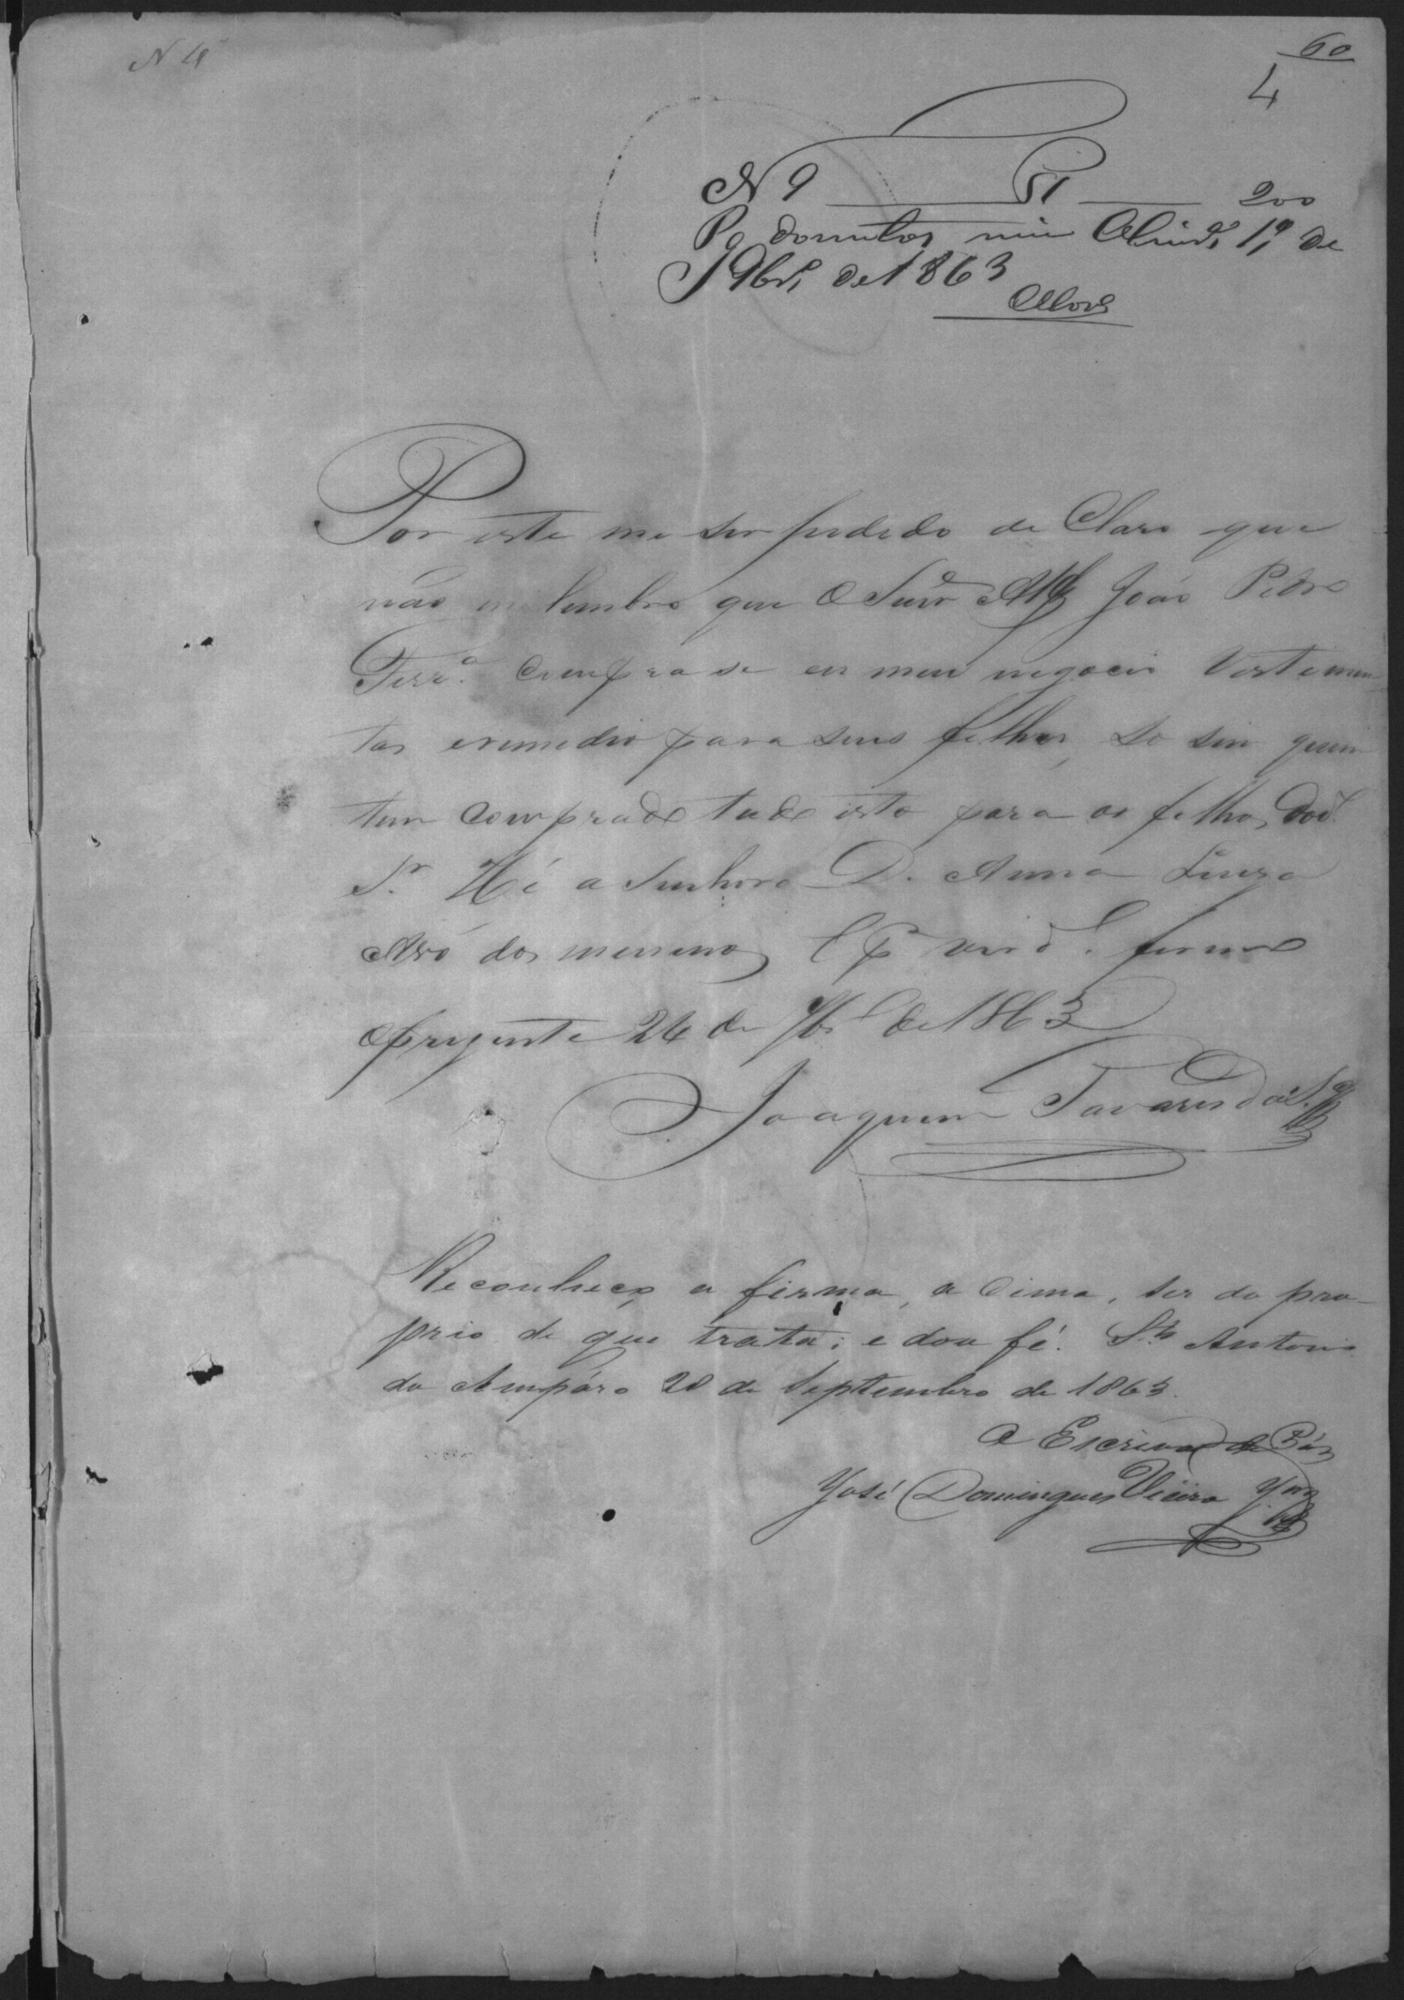 N 4
60
4
N 9 51 200
Pg. duzentos reis Olivrª 1º de
9br. de 1863
Alves
Por este me ser pedido de Claro que
não me lembro que o Senr João Pedro
Ferrª. comprase em meu negocio Vestimen
tas eremedio para seus filhos, so sim quem
tem comprado tudo isto para os filhos do d.º
Sr. Hé a Senhora D. Anna Luiza
Avó dos meninos, E p verd.e firmo
oprezente 24 de 7br.º de 1863
Joaquim Tavares da S.ª
Reconheço a firma, a cima, ser do pro-
prio de que trata; e dou fé. S.to Antonio
do Ampáro 28 de Septembro de 1863.
O Escrivão de Páz
José Domingues Vieira